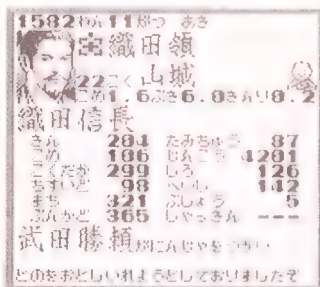 1582ねん 11がつ あき
織田領
22こく 山城
こめ1.6 ぶき6.0 きんり0.2
織田信長
きん 204 たみちゅう 87
こめ 186 じんこう 4201
こくだか 299 しろ 126
ちすいど 98 へいし 142
まち 321 ぶしょう 5
ぶんかど 365 しゃっきん ---
武田勝頼がにんじゃをつかい
とのをおとしいれようとしておりましたぞ